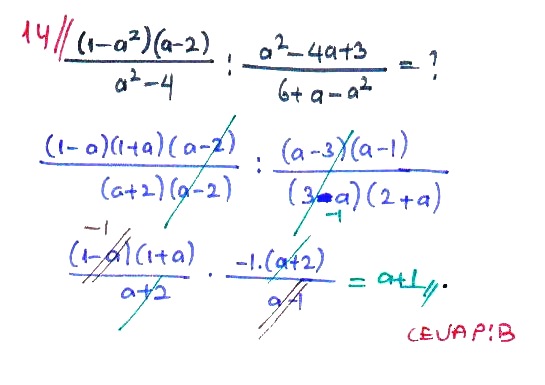 14// (1-a²)(a-2) / a²-4 : a²-4a+3 / 6+a-a² = ?
(1-a)(1+a)(a-2) / (a+2)(a-2) : (a-3)(a-1) / (3-a)(2+a)
-1
-1
(1-a)(1+a) / a+2 · -1.(a+2) / a-1 = a+1//.
CEVAP:B